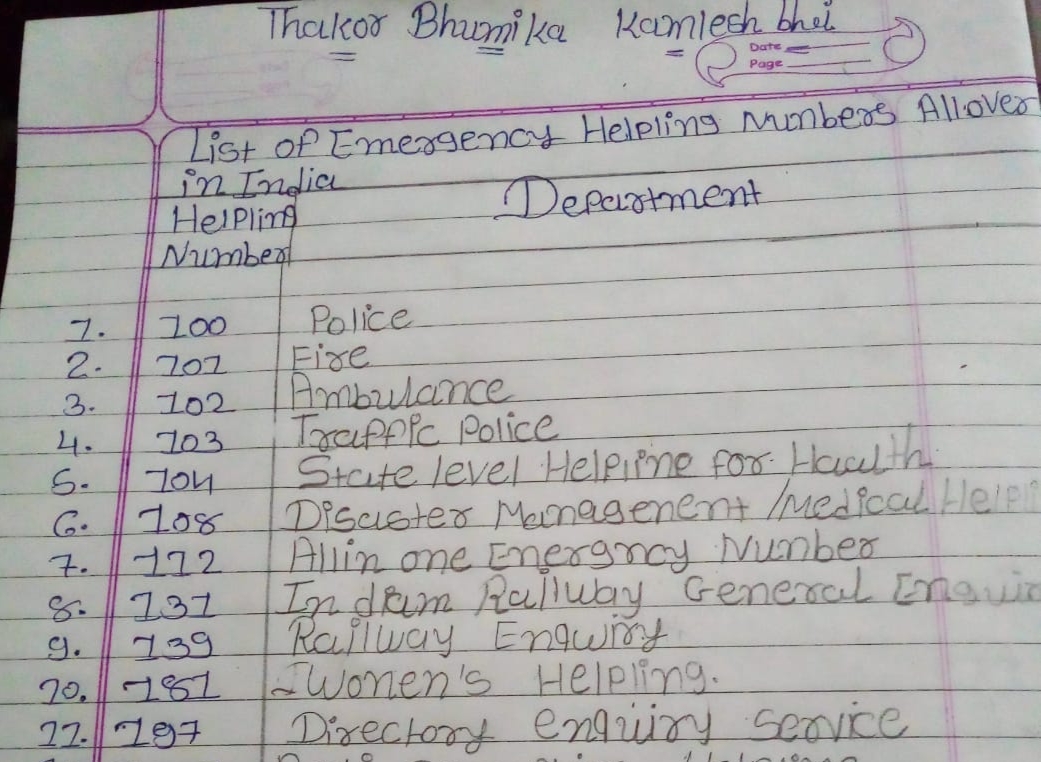 Thakor Bhumika Kamlesh bhai
Date
Page
List of Emergency Helpling Numbers Allover
in India
Helpling
Number
Department
1. 100 Police
2. 101 Fire
3. 102 Ambulance
4. 103 Traffic Police
5. 104 State level Helpline for Haulth
6. 108 Disaster Managenent /Medical Helpli
7. 112 All in one Energncy Number
8. 131 Indian Railway General Enquir
9. 139 Railway Enquiry
10. 181 Wonen's Helpling.
11. 197 Directory enquiry service